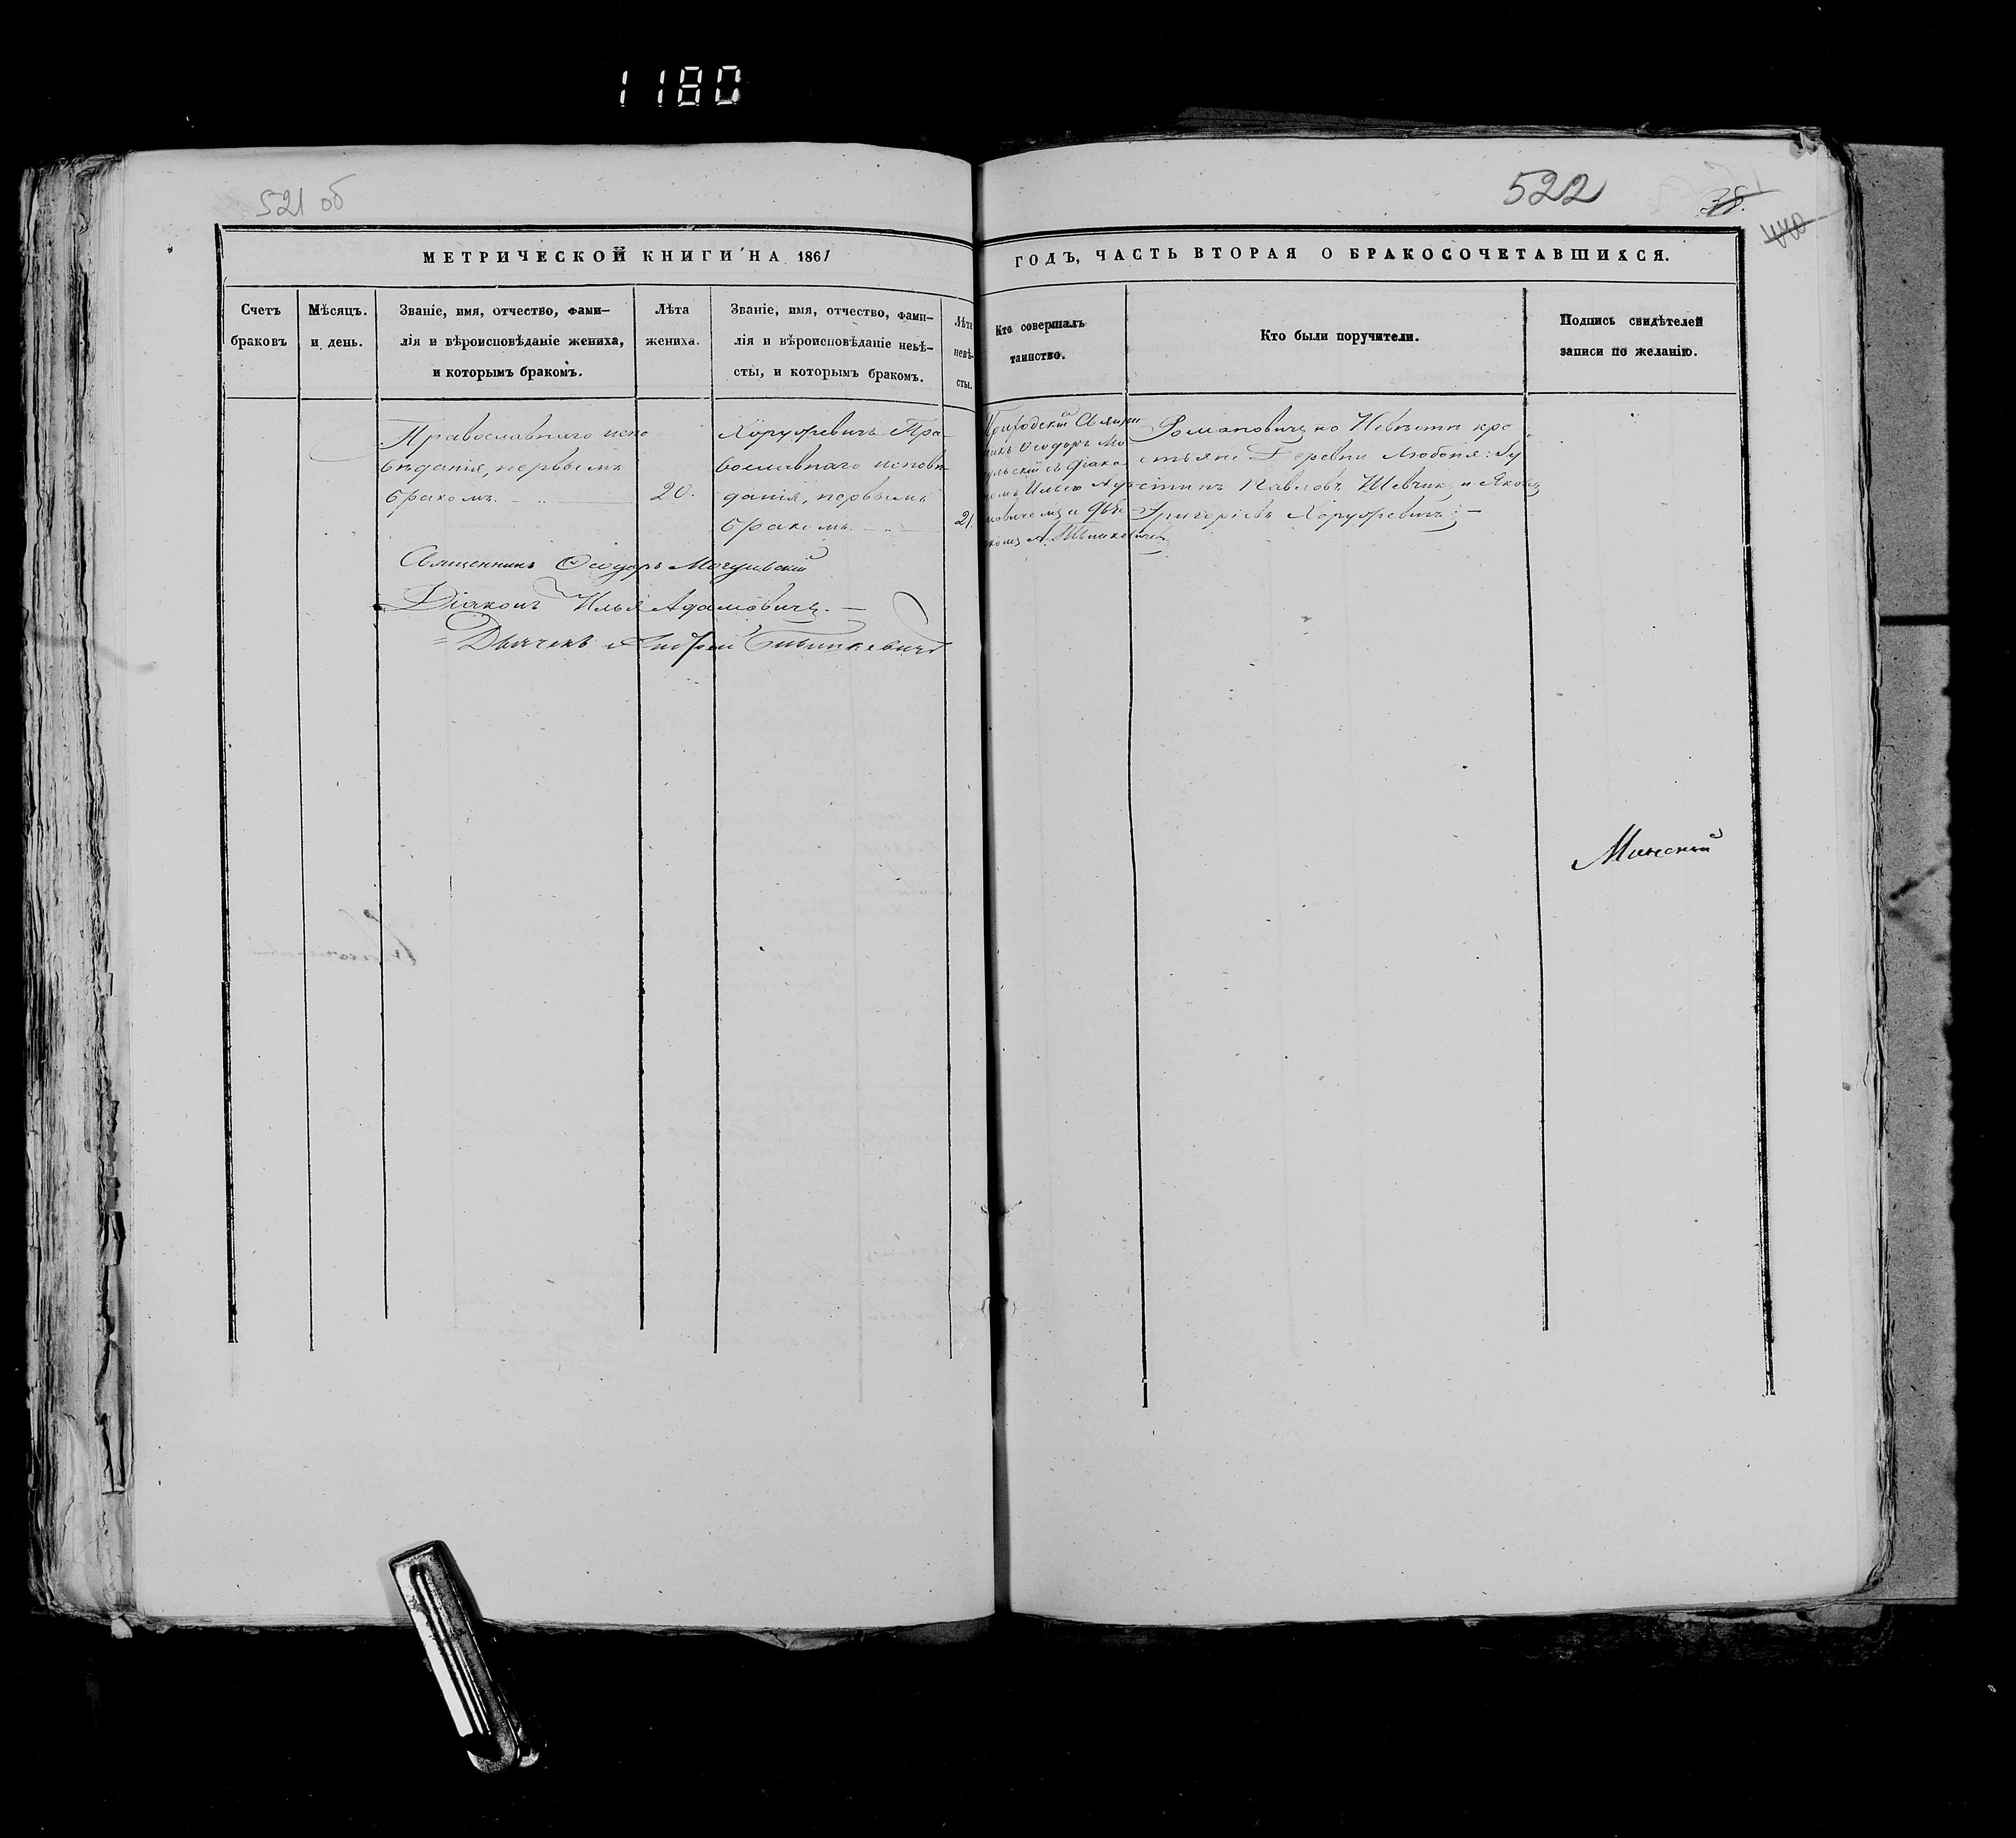 1180
521 об
522
38.
440
МЕТРИЧЕСКОЙ КНИГИ НА 1861
ГОДЪ, ЧАСТЬ ВТОРАЯ О БРАКОСОЧЕТАВШИХСЯ.
Счетъ
браковъ
Мѣсяцъ.
и день.
Званіе, имя, отчество, фами-
лія и вѣроисповѣданіе жениха,
и которымъ бракомъ.
Лѣта
жениха.
Званіе, имя, отчество, фами-
лія и вѣроисповѣданіе невѣ-
сты, и которымъ бракомъ.
Лѣта
невѣ-
сты.
Кто совершалъ
таинство.
Кто были поручители.
Подпись свидѣтелей
записи по желанію.
Православнаго испо
вѣданія, первымъ
бракомъ.
20.
Хоружевичъ Пра-
вославнаго исповѣ
данія, первымъ
бракомъ.
21.
Приходскій Священ
никъ Ѳеодоръ Мо
гульскій съ діако-
номъ Ильею Ада
мовичемъ и дья-
комъ А.
Романовичъ по Невѣстѣ кре
стьяне Деревни Любоня:
Павловъ Шевчикъ, и Яковъ
Григоріевъ Хоружевичъ; —
Священникъ Ѳеодоръ Могульскій
Діаконъ Илья Адамовичъ. —
Дьячекъ Андрей
Минскій